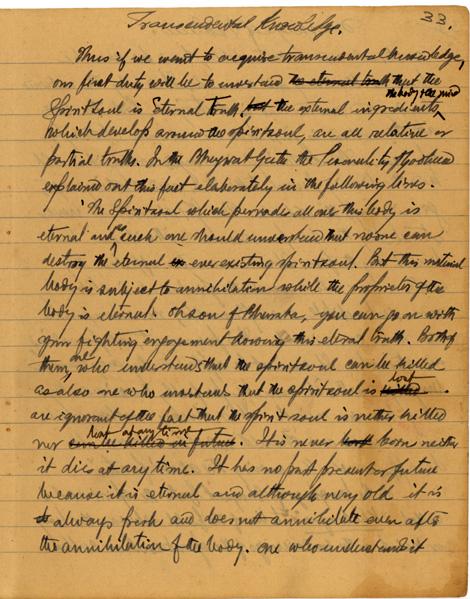 Transcendental Knowledge.
33.
Thus if we want to acquire transcendental knowledge,
our first duty will be to understand the eternal truth that the
the body & the mind
Spirit soul is Eternal truth, but the external ingredients,
which develop around the spirit soul, are all relative or
partial truths. In the Bhagwat Geeta the Personality of Godhead
explained out this fact elaborately in the following lines.
"The Spirit soul which pervades all over this body is
eternal and as such one should understand that no one can
destroy the eternal ever existing spirit soul. But this material
body is subject to annihilation while the proprietor of the
body is eternal. Oh son of Bharata, you can go on with
your fighting engagement knowing this eternal truth. Both of
them, one who understands that the spirit soul can be killed
as also one who understands that the spirit soul is killed
are ignorant of the fact that the spirit soul is neither killed
at any time
nor can be killed in future. It is never born neither
it dies at any time. It has no past present or future
because it is eternal and although very old it is
always fresh and does not annihilate even after
the annihilation of the body. One who understand it